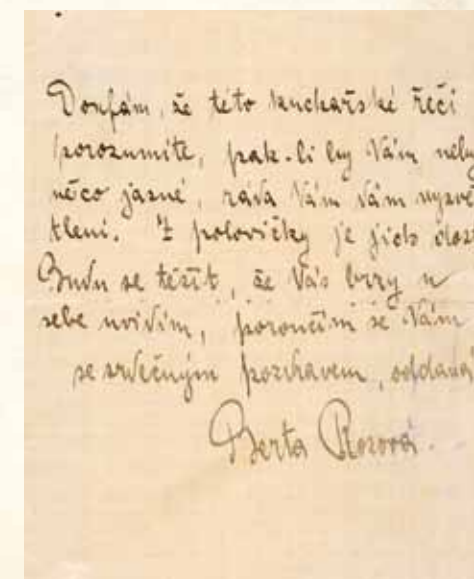 Doufám, že této kuchařské řeči
porozumíte, pak-li by Vám neby
něco jasné, ráda Vám dám vysvě
tlení. Z polovičky je jich dost
Budu se těšit, že Vás brzy u
sebe uvidím, poroučím se Vám
se srdečným pozdravem, oddaná
Berta Rosová.